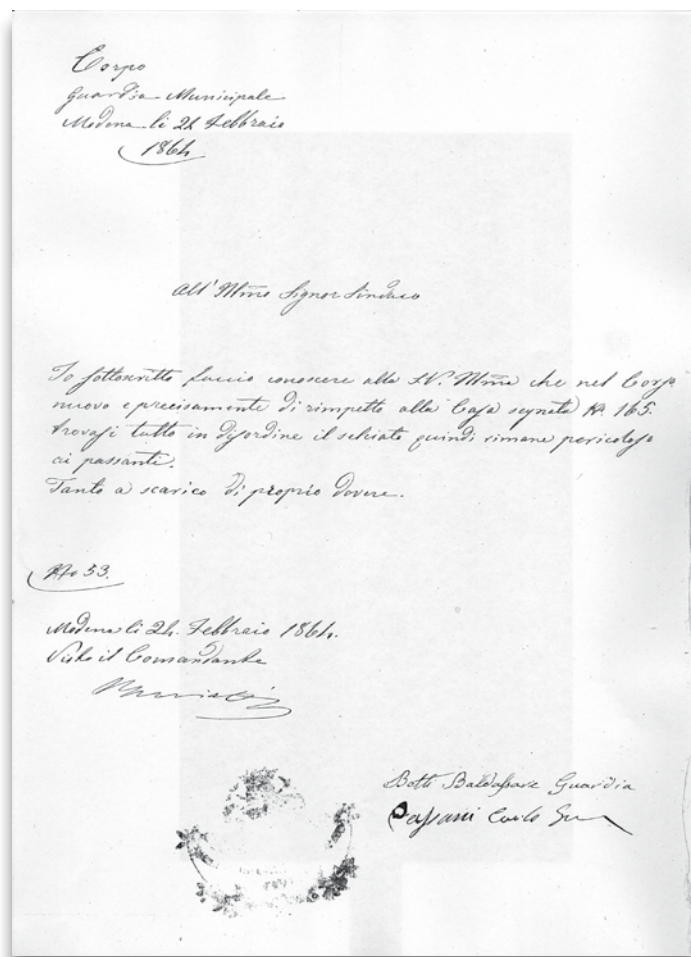 Corpo
Guardia Municipale
Modena li 24 Febbraio
1864
All' Illmo Signor Sindaco
Io sottoscritto faccio conoscere alla S.V. Illma che nel Corso
nuovo e precisamente di rimpetto alla Casa segnata N. 165.
trovasi tutto in disordine il selciato quindi rimane pericoloso
ai passanti.
Tanto a scarico di proprio dovere.
No 53.
Modena li 24. Febbraio 1864.
Visto il Comandante
Botti Baldassare Guardia
Carlo